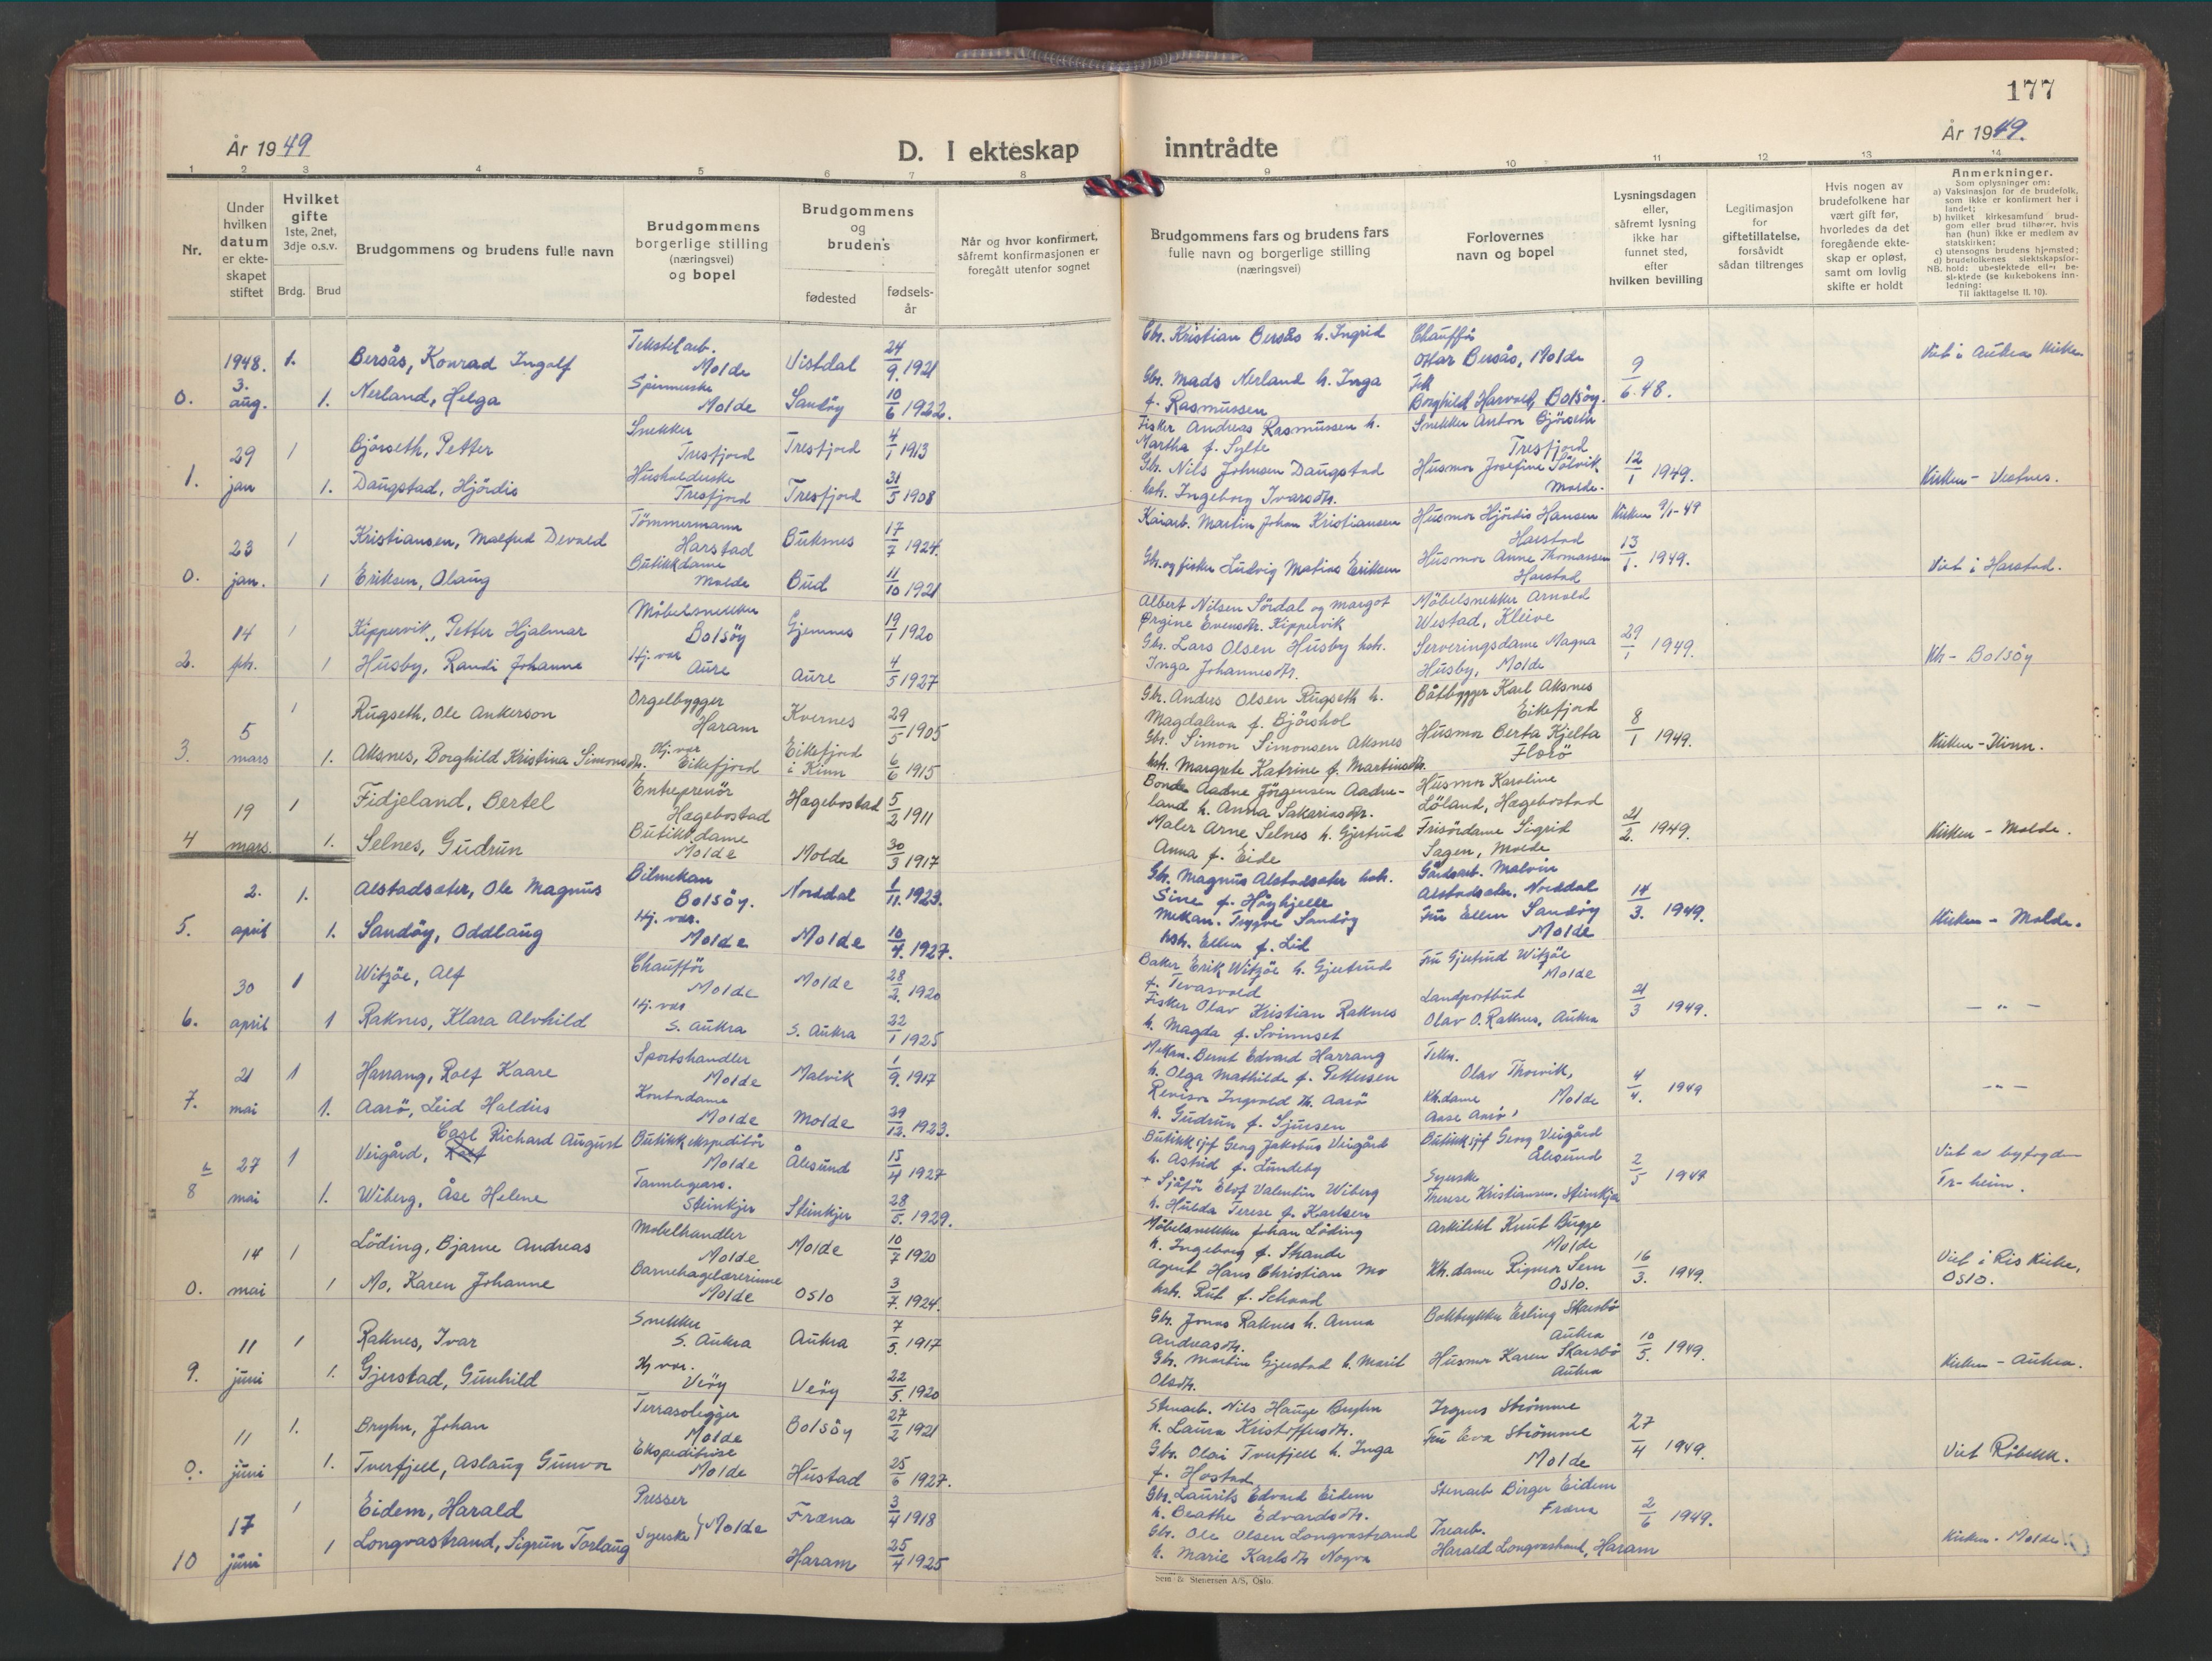 177
År 1949
D. I ekteskap inntrådte
År 1949.
1 2 3 4 5 6 7 8 9 10 11 12 13 14
Nr.
Under hvilken datum er ekteskapet stiftet
Hvilket gifte 1ste, 2net, 3dje o.s.v.
Brdg. Brud
Brudgommens og brudens fulle navn
Brudgommens borgerlige stilling (næringsvei) og bopel
Brudgommens og brudens
fødested
fødsels-år
Når og hvor konfirmert, såfremt konfirmasjonen er foregått utenfor sognet
Brudgommens fars og brudens fars fulle navn og borgerlige stilling (næringsvei)
Forlovernes navn og bopel
Lysningsdagen eller, såfremt lysning ikke har funnet sted, efter hvilken bevilling
Legitimasjon for giftetillatelse, forsåvidt sådan tiltrenges
Hvis nogen av brudefolkene har vært gift før, hvorledes da det foregående ekteskap er opløst, samt om lovlig skifte er holdt
Anmerkninger.
Som oplysninger om:
a) Vaksinasjon for de brudefolk, som ikke er konfirmert her i landet;
b) hvilket kirkesamfund brudgom eller brud tilhører, hvis han (hun) ikke er medlem av statskirken;
c) utensogns brudens hjemsted;
d) brudefolkenes slektskapsforhold: ubeslektede eller beslektede (se kirkebokens innledning:
Til iakttagelse II. 10).
1948. 1. Bersås, Konrad Ingolf Tekstilarb. Molde Vistdal 24/9 1921 Gbr. Kristian Bersås h. Ingrid Chauffør Ottar Bersås, Molde 9/6 48. Viet i Aukra Kirke
0. 3. aug. 1. Nerland, Helga Spinnerske Molde Sandöy 10/6 1922. Gbr. Mads Nerland h. Inga f. Rasmussen Borghild Harvold, Bolsöy.
29 1 Bjørseth, Petter Snekker Tresfjord Tresfjord 4/1 1913 Fisker Andreas Rasmussen h. Martha f. Sylte Snekker Anton Bjørseth Tresfjord 12/1 1949.
1. jan 1. Daugstad, Hjördis Husholderske Tresfjord Tresfjord 31/5 1908 Gbr. Nils Johnsen Daugstad hsh. Ingeborg Ivarsdtr. Husmor Josefine Sölvik Molde. Kirken - Vestnes.
23 1 Kristiansen, Malfred Devold Tömmermann Harstad Buksnes 17/7 1924. Kaiarb. Martin Johan Kristiansen Husmor Hjördis Hansen Harstad Kirken 9/1-49
0. jan. 1 Eriksen, Olaug Butikkdame Molde Bud 11/10 1921 Gbr. og fisker Ludvig Matias Eriksen Husmor Anne Thomassen Harstad 13/1. 1949. Viet i Harstad.
14 1 Kippervik, Petter Hjalmar Möbelsnekker Bolsöy Gjemnes 19/1 1920 Albert Nilsen Sördal og Margot Ørgine Evensdtr. Kippervik Möbelsnekker Arnold Westad, Kleive 29/1 1949.
2. feb. 1 Husby, Randi Johanne Hj. vær Aure Aure 4/5 1927 Gbr. Lars Olsen Husby hsh. Inga Johannesdtr. Serveringsdame Magna Husby, Molde Kh - Bolsöy
5 1 Rugseth, Ole Ankerson Orgelbygger Haram Kvernes 29/5 1905 Gbr. Anders Olsen Rugseth h. Magdalena f. Bjørshol Båtbygger Karl Aksnes Eikefjord 8/1 1949.
3. mars 1. Aksnes, Borghild Kristina Simonsdtr. Hj. vær Eikefjord Eikefjord i Kinn 6/6 1915 Gbr. Simon Simonsen Aksnes hsh. Margrete Katrine f. Martinsdtr. Husmor Berta Kjelta Florö Kirken - Kinn.
19 1 Fidjeland, Bertel Entreprenör Hægebostad Hægebostad 5/2 1911 Bonde Aadne Jörgensen Aadneland h. Anna Sakariasdtr. Husmor Karoline Löland, Hægebostad 21/2. 1949.
4 mars. 1. Selnes, Gudrun Butikkdame Molde Molde 30/3 1917 Maler Arne Selnes h. Gjertrud Anna f. Eide Frisördame Sigrid Sagen, Molde Kirken - Molde.
2. 1. Alstadsæter, Ole Magnus Bilmekan Bolsöy. Norddal 1/11. 1923. Gbr. Magnus Alstadsæter hsh. Sine f. Höghjelle Gårdsarb. Malvin Alstadsæter. Norddal 14/3. 1949.
5. april 1. Sandöy, Oddlaug Hj. vær. Molde Molde 10/4. 1927. Mekan. Trygve Sandöy hsh. Ellen f. Lid Fru Ellen Sandöy Molde Kirken - Molde.
30 1 Witzöe, Alf Chauffør Molde Molde 28/2. 1920 Baker Erik Witzöe h. Gjertrud f. Tevasvold Fru Gjertrud Witzöe Molde 21/3 1949.
6. april 1 Raknes, Klara Alvhild Hj. vær S. Aukra S. Aukra 22/1 1925 Fisker Olav Kristian Raknes h. Magda f. Svinnset Landpostbud Olav O. Raknes, Aukra - " -
21 1 Harrang, Rolf Kaare Sportshandler Molde Malvik 1/9. 1917 Mekan. Bernt Edvard Harrang h. Olga Mathilde f. Pettersen Tekn. Olav Thorvik, Molde 4/4. 1949
7. mai 1. Aarö, Leid Haldis Kontordame Molde Molde 29/12. 1923. Revisor Ingvald M. Aarö h. Gudrun f. Sjursen Kh.dame Aase Aarö - " -
27 1 Veigård, Carl Richard August Butikkekspeditör Molde Ålesund 15/4 1927 Butikksjef Georg Jakobus Veigård h. Astrid f. Lundeby Butikksjef Georg Veigård Ålesund 2/5 1949 Viet av byfogden Tr-heim.
8 mai 1. Wiberg, Åse Helene Tannlegeass. Steinkjer Steinkjer 28/5. 1929. + Sjåfør Elof Valentin Wiberg h. Hulda Terese f. Karlsen Syerske Therese Kristiansen. Steinkjer
14 1 Löding, Bjarne Andreas Möbelhandler Molde Molde 10/7 1920 Möbelsnekker Johan Löding h. Ingeborg f. Skande Arkitekt Knut Bugge Molde 16/3. 1949. Viet i Ris Kirke, Oslo.
0. mai 1 Mo, Karen Johanne Barnehagelærerinne Molde Oslo 3/7. 1924. Agent Hans Christian Mo hsh. Rut f. Schaad Kh.dame Rigmor Sem Oslo.
11 1 Raknes, Ivar Snekker S. Aukra Aukra 7/5. 1917 Gbr. Jonas Raknes h. Anna Andreasdtr. Båtbygger Erling Skarsbö Aukra 10/5. 1949.
9. juni 1. Gjerstad, Gunhild Hj vær. Veöy Veöy 22/5. 1920 Gbr. Martin Gjerstad h. Marit Olsdtr. Husmor Karen Skarsbö Aukra Kirken - Aukra.
11 1. Bryhn, Johan Terrasoligger Molde Bolsöy 27/2 1921 Stenarb. Nils Hauge Bryhn h. Laura Kristoffersdtr. Irgens Strömme 27/4 1949.
0. juni 1. Tverfjell, Aslaug Gunvor Ekspeditrise Molde Hustad 25/6 1927. Gbr. Olai Tverfjell h. Inga f. Hostad Fru Eva Strömme Molde Viet Röbekk.
17 1 Eidem, Harald Presser Molde Fræna 3/4 1918 Gbr. Laurits Edvard Eidem h. Beathe Edvardsdtr. Stenarb Birger Eidem Fræna 2/6 1949.
10 juni 1 Longvastrand, Sigrun Torlaug Syerske Haram 25/4 1925 Gbr. Ole Olsen Longvastrand h. Marie Karlsdtr Nogva Trearb. Harald Longvastrand, Haram Kirken - Molde
Sem & Stenersen A/S, Oslo.